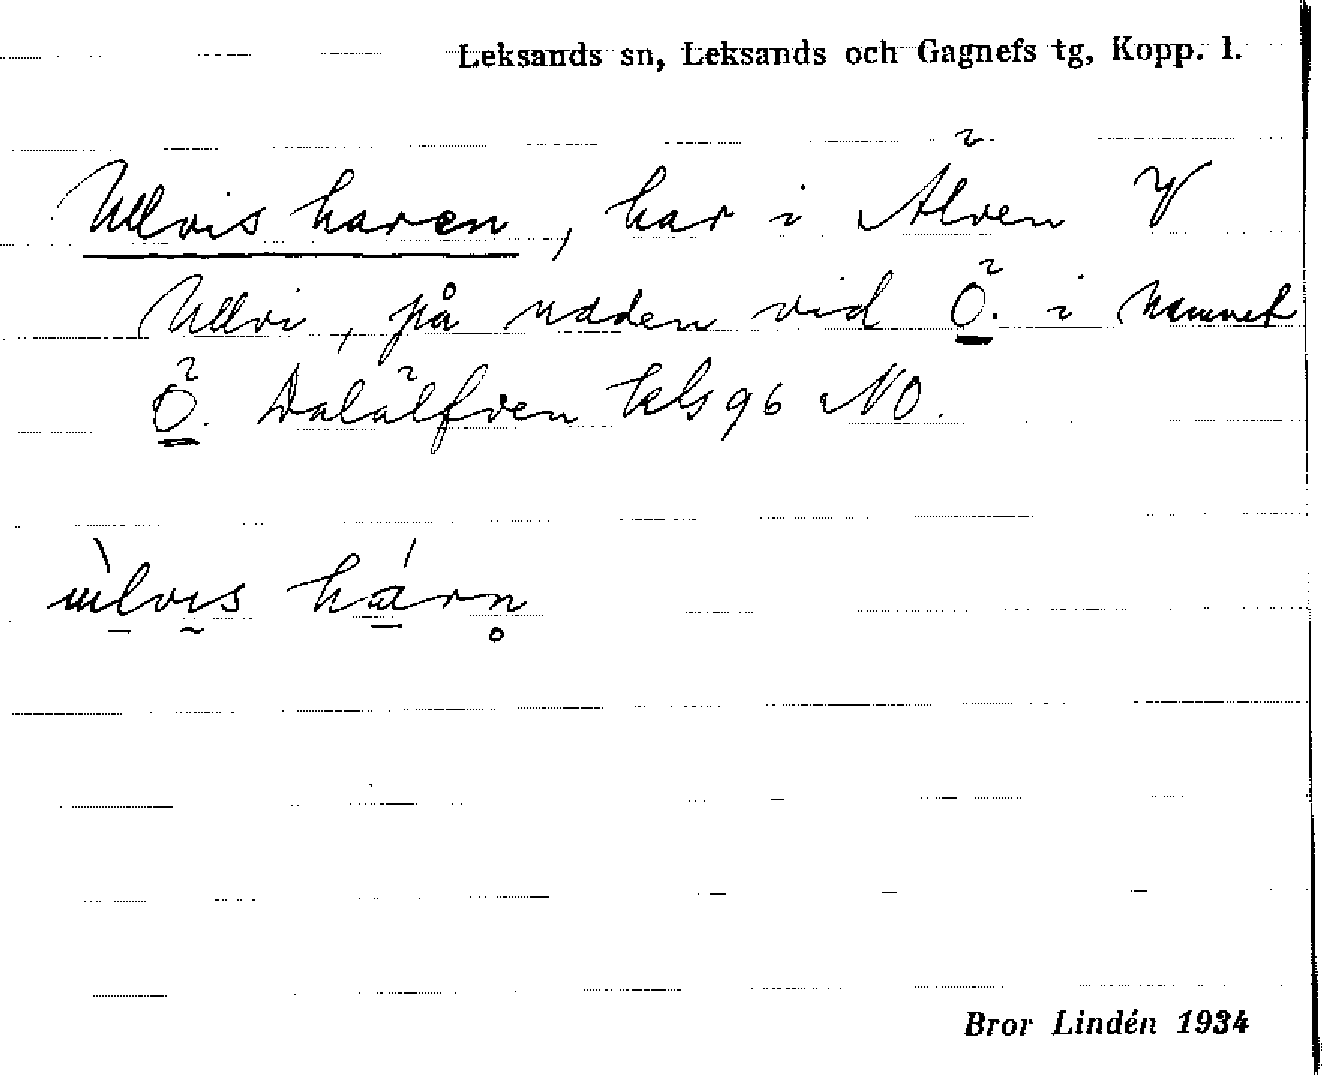 Leksands sn, Leksands och Gagnefs tg, Kopp. l.
Ullvis haren, har i Älven V
Ullvi, på udden vid Ö. i namnet
Ö. Dalälfven kbs 96 NO.
ùlvis hárn̥
Bror Lindén 1934